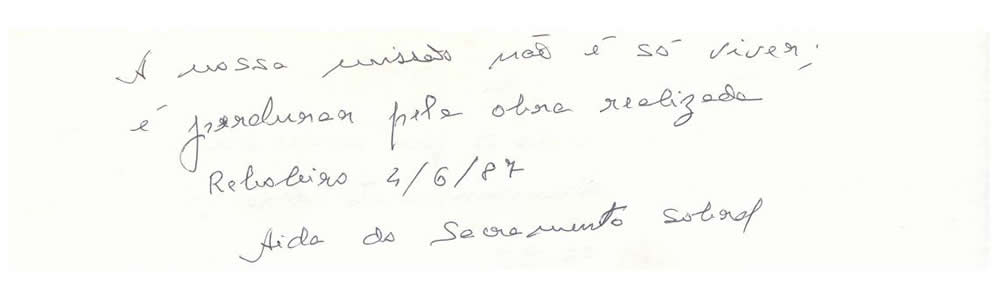 A nossa missão não é só viver;
é perdurar pela obra realizada
Reboleiro 4/6/87
Aida do Sacramento Sobral